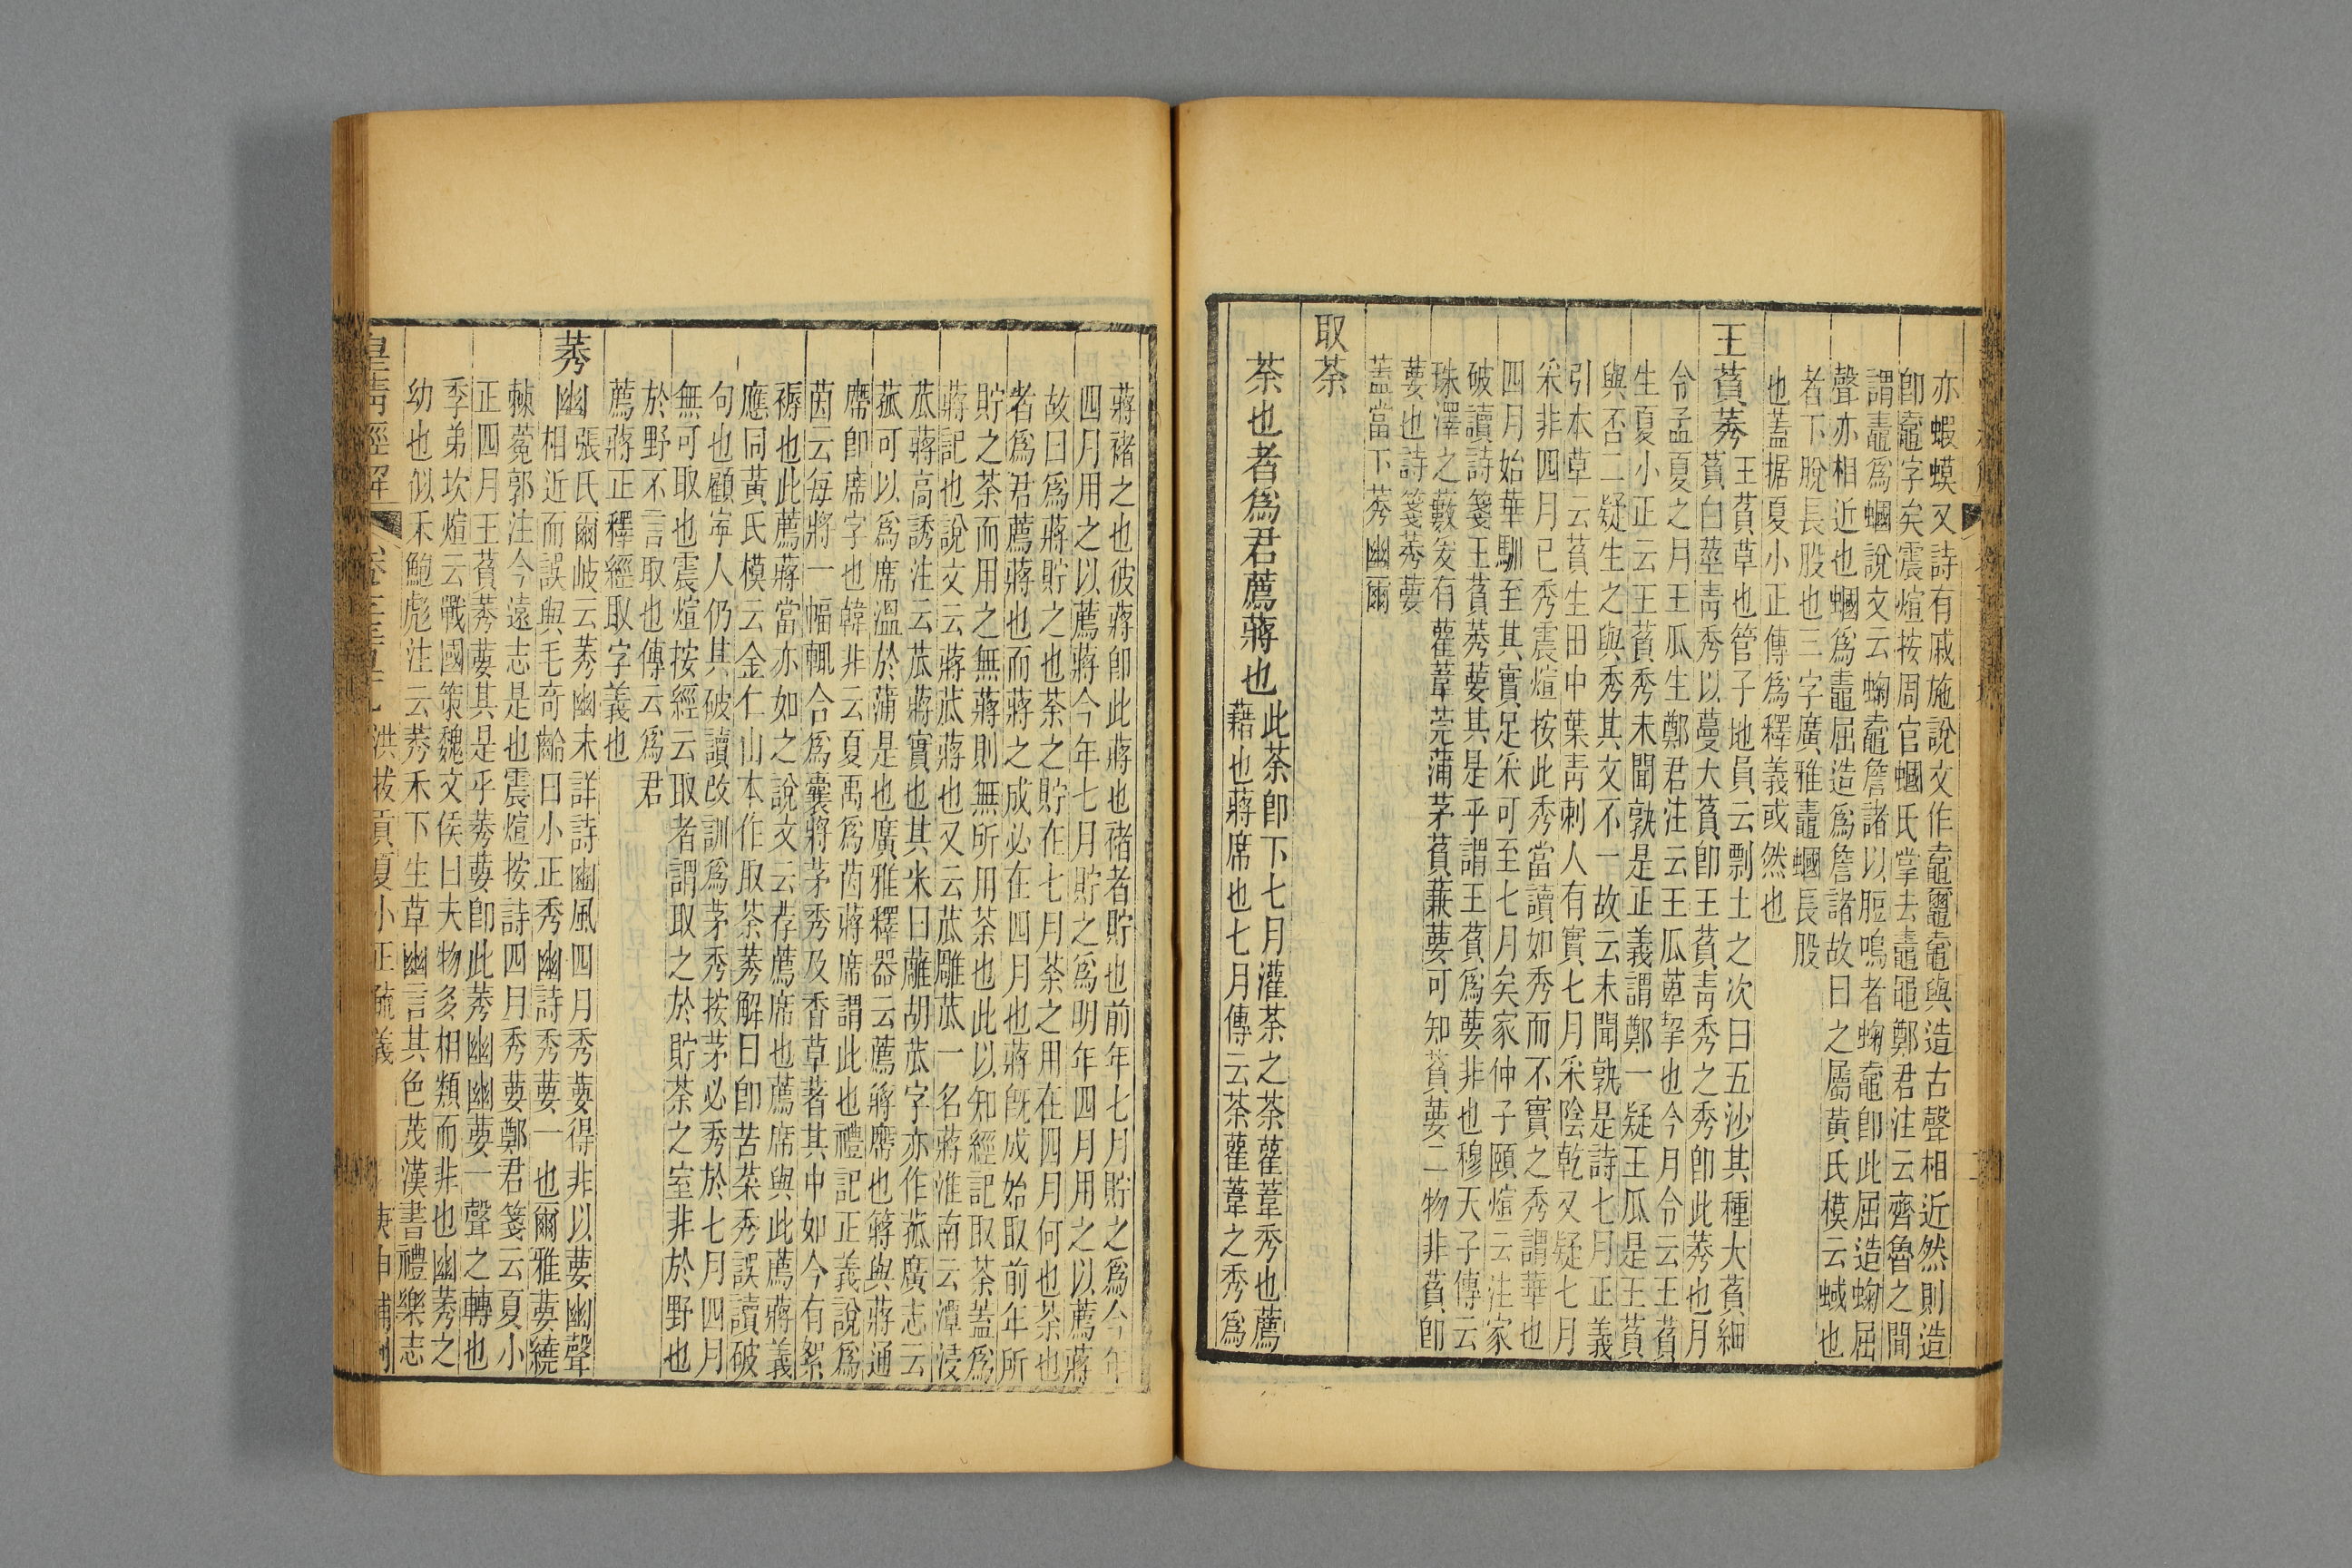 亦蝦蟆又詩有戚施說文作𪓰𪓿𪓰與造古聲相近然則造
卽𪓰字矣震煊按周官蟈氏掌去鼃黽鄭君注云齊魯之間
謂鼃爲蟈說文云蝒𪓰詹諸以脰鳴者蝒𪓰卽此屈造蝒屈
聲亦相近也蟈爲鼃屈造爲詹諸故曰之屬黃氏模云蜮也
者下脫長股也三字廣雅鼃蟈長股
也蓋据夏小正傳爲釋義或然也
王萯莠
王萯草也管子地員云剽土之次曰五沙其種大萯細
萯白莖靑秀以蔓大萯卽王萯靑秀之秀卽此莠也月
令孟夏之月王瓜生鄭君注云王瓜萆挈也今月令云王萯
生夏小正云王萯秀未聞孰是正義謂鄭一疑王瓜是王萯
與否二疑生之與秀其文不一故云未聞孰是詩七月正義
引本草云萯生田中葉靑刺人有實七月采陰乾又疑七月
采非四月已秀震煊按此秀當讀如秀而不實之秀謂華也
四月始華馴至其實足采可至七月矣家仲子頤煊云注家
破讀詩箋王萯莠葽其是乎謂王萯爲葽非也穆天子傳云
珠澤之藪爰有雚葦莞蒲茅萯蒹葽可知萯葽二物非萯卽
葽也詩箋莠葽
蓋當下莠幽爾
取荼
荼也者爲君薦蔣也
此荼卽下七月灌荼之荼雚葦秀也薦
藉也蔣席也七月傳云荼雚葦之秀爲
蔣褚之也彼蔣卽此蔣也褚者貯也前年七月貯之爲今年
四月用之以薦蔣今年七月貯之爲明年四月用之以薦蔣
故曰爲蔣貯之也荼之貯在七月荼之用在四月何也荼也
者爲君薦蔣也而蔣之成必在四月也蔣旣成始取前年所
貯之荼而用之無蔣則無所用荼也此以知經記取荼蓋爲
蔣記也說文云蔣苽蔣也又云苽雕苽一名蔣淮南云潭浸
苽蔣高誘注云苽蔣實也其米曰雕胡苽字亦作菰廣志云
菰可以爲席溫於蒲是也廣雅釋器云薦蔣席也簿與蔣通
席卽席字也韓非云夏禹爲茵蔣席謂此也禮記正義說爲
茵云每將一幅輒合爲囊將茅秀及香草著其中如今有絮
褥也此薦蔣當亦如之說文云荐薦席也薦席與此薦蔣義
應同黃氏模云金仁山本作取荼莠解曰卽苦菜秀誤讀破
句也顧寧人仍其破讀改訓爲茅秀按茅必秀於七月四月
無可取也震煊按經云取者謂取之於貯荼之室非於野也
於野不言取也傳云爲君
薦蔣正釋經取字義也
莠幽
張氏爾岐云莠幽未詳詩豳風四月秀葽得非以葽幽聲
相近而誤與毛奇齡曰小正秀幽詩秀葽一也爾雅葽繞
蕀蒬郭注今遠志是也震煊按詩四月秀葽鄭君箋云夏小
正四月王萯莠葽其是乎莠葽卽此莠幽幽葽一聲之轉也
季弟坎煊云戰國策魏文侯曰夫物多相類而非也幽莠之
幼也似禾鮑彪注云莠禾下生草幽言其色茂漢書禮樂志
皇清經解 洪拔貢夏小正疏義 庚申補刊